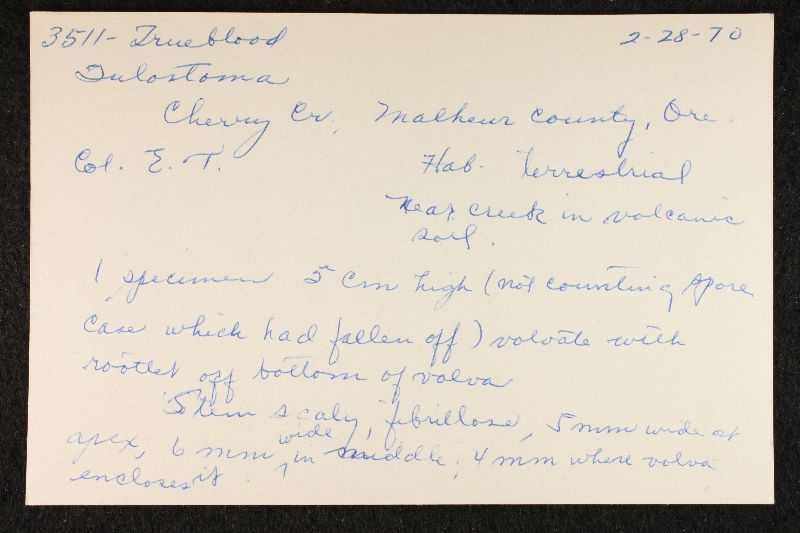 3511- Trueblood 2-28-70
Tulostoma
Cherry Cr, Malheur County, Ore.
Col. E. T. Hab. terrestrial
Near creek in volcanic
soil.
1 specimen 5 cm high (not counting spore
case which had fallen off) volvate with
rootlet off bottom of volva
Stem scaly, fibrillose, 5 mm wide at
apex, 6 mm wide in middle, 4 mm where volva
encloses it.